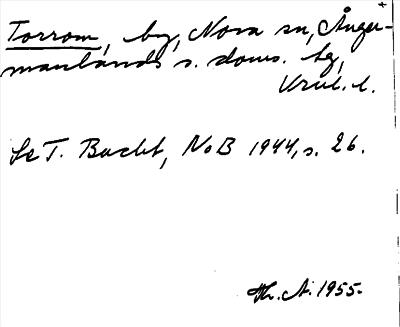 Torrom, by, Nora sn, Ånger-
manlands s. doms. hg,
Vrml. l.
Se T. Bucht, NoB 1944, s. 26.
Th. A. 1955.